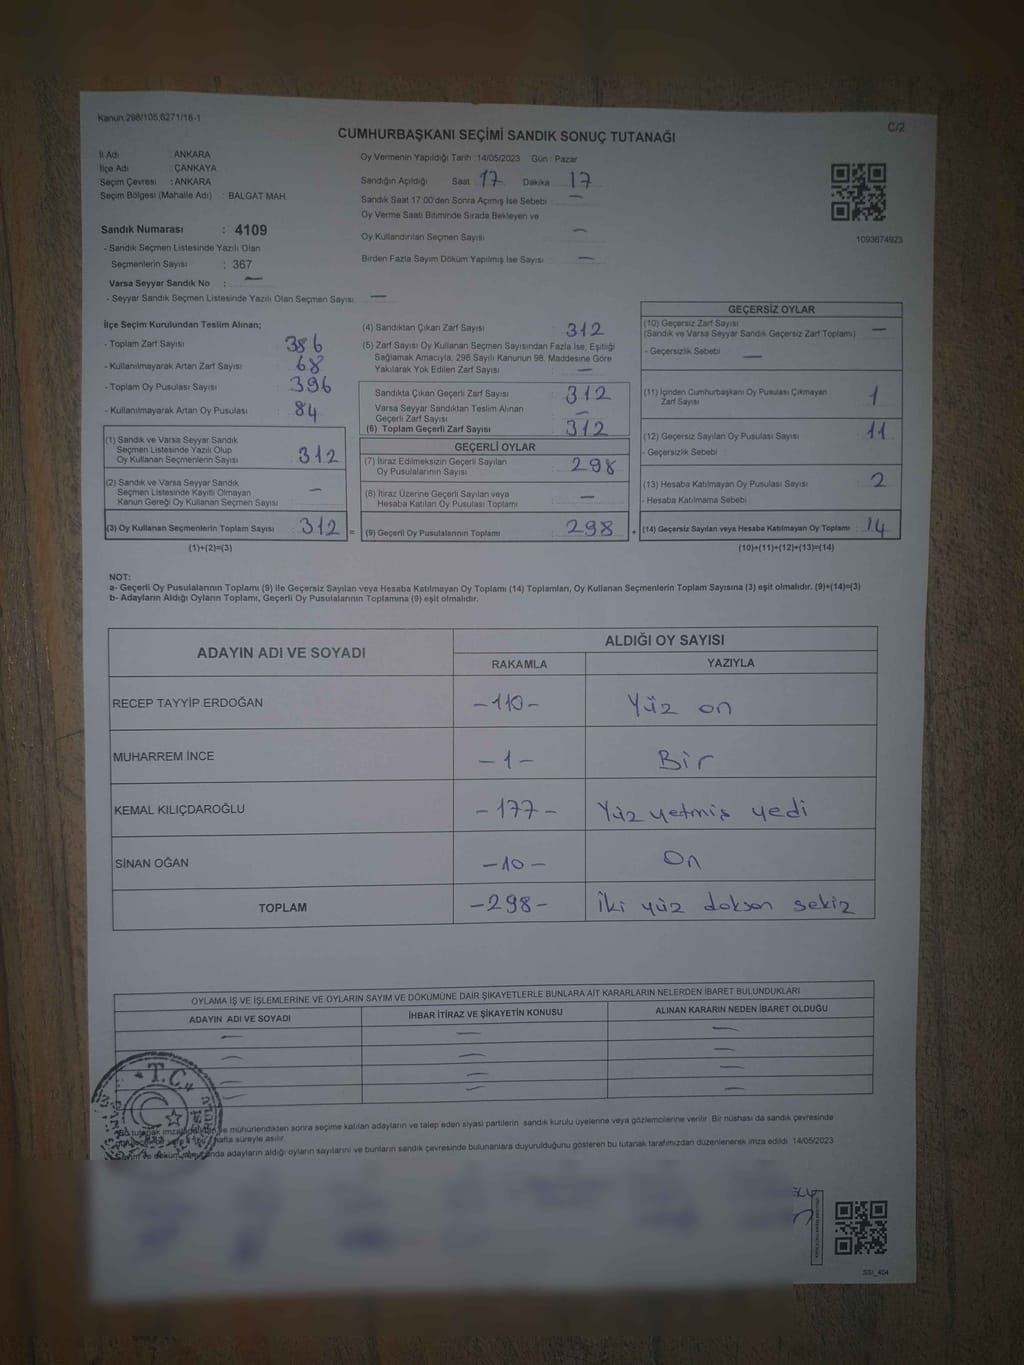 Kanun:298/105,6271/18-1
C/2
CUMHURBAŞKANI SEÇİMİ SANDIK SONUÇ TUTANAĞI
İl Adı : ANKARA
İlçe Adı : ÇANKAYA
Seçim Çevresi : ANKARA
Seçim Bölgesi (Mahalle Adı) : BALGAT MAH.
Sandık Numarası : 4109
- Sandık Seçmen Listesinde Yazılı Olan
Seçmenlerin Sayısı : 367
Varsa Seyyar Sandık No : —
- Seyyar Sandık Seçmen Listesinde Yazılı Olan Seçmen Sayısı —
Oy Vermenin Yapıldığı Tarih :14/05/2023 Gün : Pazar
Sandığın Açıldığı Saat 17 Dakika 17
Sandık Saat 17:00'den Sonra Açımış İse Sebebi —
Oy Verme Saati Bitiminde Sırada Bekleyen ve
Oy Kullandırılan Seçmen Sayısı —
Birden Fazla Sayım Döküm Yapılmış İse Sayısı —
1093674923
İlçe Seçim Kurulundan Teslim Alınan;
- Toplam Zarf Sayısı 386
- Kullanılmayarak Artan Zarf Sayısı 68
- Toplam Oy Pusulası Sayısı 396
- Kullanılmayarak Artan Oy Pusulası 84
(1) Sandık ve Varsa Seyyar Sandık
Seçmen Listesinde Yazılı Olup
Oy Kullanan Seçmenlerin Sayısı 312
(2) Sandık ve Varsa Seyyar Sandık
Seçmen Listesinde Kayıtlı Olmayan
Kanun Gereği Oy Kullanan Seçmen Sayısı —
(3) Oy Kullanan Seçmenlerin Toplam Sayısı 312 =
(1)+(2)=(3)
(4) Sandıktan Çıkan Zarf Sayısı 312
(5) Zarf Sayısı Oy Kullanan Seçmen Sayısından Fazla İse, Eşitliği
Sağlamak Amacıyla, 298 Sayılı Kanunun 98. Maddesine Göre
Yakılarak Yok Edilen Zarf Sayısı —
Sandıkta Çıkan Geçerli Zarf Sayısı 312
Varsa Seyyar Sandıktan Teslim Alınan
Geçerli Zarf Sayısı —
(6) Toplam Geçerli Zarf Sayısı 312
GEÇERLİ OYLAR
(7) İtiraz Edilmeksizin Geçerli Sayılan
Oy Pusulalarının Sayısı 298
(8) İtiraz Üzerine Geçerli Sayılan veya
Hesaba Katılan Oy Pusulası Toplamı —
(9) Geçerli Oy Pusulalarının Toplamı 298 +
GEÇERSİZ OYLAR
(10) Geçersiz Zarf Sayısı
(Sandık ve Varsa Seyyar Sandık Geçersiz Zarf Toplamı) —
- Geçersizlik Sebebi —
(11) İçinden Cumhurbaşkanı Oy Pusulası Çıkmayan
Zarf Sayısı 1
(12) Geçersiz Sayılan Oy Pusulası Sayısı 11
- Geçersizlik Sebebi
(13) Hesaba Katılmayan Oy Pusulası Sayısı 2
- Hesaba Katılmama Sebebi
(14) Geçersiz Sayılan veya Hesaba Katılmayan Oy Toplamı 14
(10)+(11)+(12)+(13)=(14)
NOT:
a- Geçerli Oy Pusulalarının Toplamı (9) ile Geçersiz Sayılan veya Hesaba Katılmayan Oy Toplamı (14) Toplamları, Oy Kullanan Seçmenlerin Toplam Sayısına (3) eşit olmalıdır. (9)+(14)=(3)
b- Adayların Aldığı Oyların Toplamı, Geçerli Oy Pusulalarının Toplamına (9) eşit olmalıdır.
ADAYIN ADI VE SOYADI ALDIĞI OY SAYISI
RAKAMLA YAZIYLA
RECEP TAYYİP ERDOĞAN -110- Yüz on
MUHARREM İNCE -1- Bir
KEMAL KILIÇDAROĞLU -177- Yüz yetmiş yedi
SİNAN OĞAN -10- On
TOPLAM -298- İki yüz doksan sekiz
OYLAMA İŞ VE İŞLEMLERİNE VE OYLARIN SAYIM VE DÖKÜMÜNE DAİR ŞİKAYETLERLE BUNLARA AİT KARARLARIN NELERDEN İBARET BULUNDUKLARI
ADAYIN ADI VE SOYADI İHBAR İTİRAZ VE ŞİKAYETİN KONUSU ALINAN KARARIN NEDEN İBARET OLDUĞU
— — —
— — —
— — —
— — —
T.C.
Bu tutanak ve mühürlendikten sonra seçime katılan adayların ve talep eden siyasi partilerin sandık kurulu üyelerine veya gözlemcilerine verilir. Bir nüshası da sandık çevresinde
hafta süreyle asılır.
adayların aldığı oyların sayılarını ve bunların sandık çevresinde bulunanlara duyurulduğunu gösteren bu tutanak tarafımızdan düzenlenerek imza edildi. 14/05/2023
SSI_404